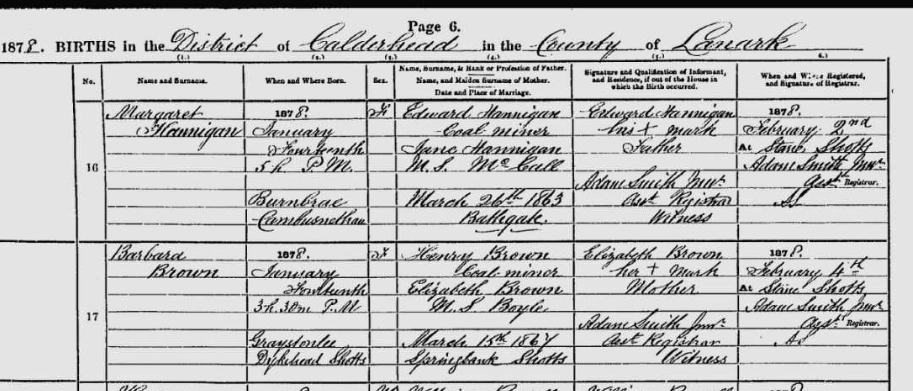 Page 6.
1878. BIRTHS in the District of Calderhead in the County of Lanark
(1.) (2.) (3.) (4.) (5.) (6.)
No. Name and Surname. When and Where Born. Sex. Name, Surname, & Rank or Profession of Father. Name, and Maiden Surname of Mother. Date and Place of Marriage. Signature and Qualification of Informant, and Residence, if out of the House in which the Birth occurred. When and Where Registered, and Signature of Registrar.
16
Margaret
Hannigan
1878.
January
Fourteenth
5 h. P.M.
Burnbrae
Cambusnethan
F
Edward Hannigan
Coal miner
Jane Hannigan
M.S. McCall
March 26th 1863
Bathgate.
Edward Hannigan
his + mark
Father
Adam Smith Junr.
Asst Registrar
Witness
1878.
February 2nd
At Stane Shotts
Adam Smith Junr.
Asst Registrar.
17
Barbara
Brown
1878.
January
3 h. 30 m P.M
Dykehead Shotts
F
Henry Brown
Coal miner
Elizabeth Brown
M.S. Boyle
March 15th 1867
Springbank Shotts
Elizabeth Brown
her + mark
Mother
Adam Smith Junr.
Asst Registrar
Witness
1878.
February 4th
At Stane Shotts
Adam Smith Junr.
Asst Registrar.